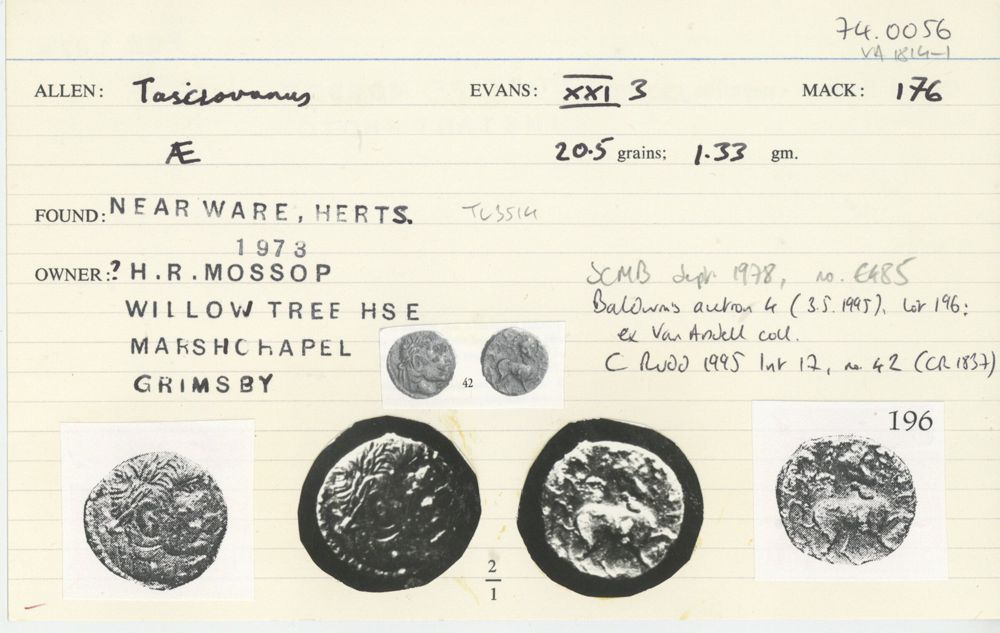 74.0056
VA 1814-1
ALLEN: Tasciovanus EVANS: XXI 3 MACK: 176
Æ 20.5 grains; 1.33 gm.
FOUND: NEAR WARE, HERTS. TL3514
1973
OWNER:? H.R.MOSSOP
WILLOW TREE HSE
MARSHCHAPEL
GRIMSBY
SCMB Sept 1978, no. E485
Baldwins auction 4 (3.5.1995), lot 196:
ex Van Arsdell coll.
C Rudd 1995 list 17, no. 42 (CR1837)
42
196
2
1